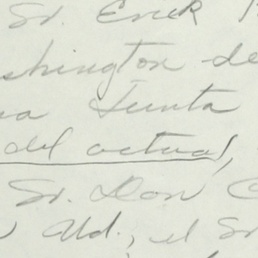 Sr. Erick
shington de
a Junta
del actual,
Sr. Don C
Ud., el Sr